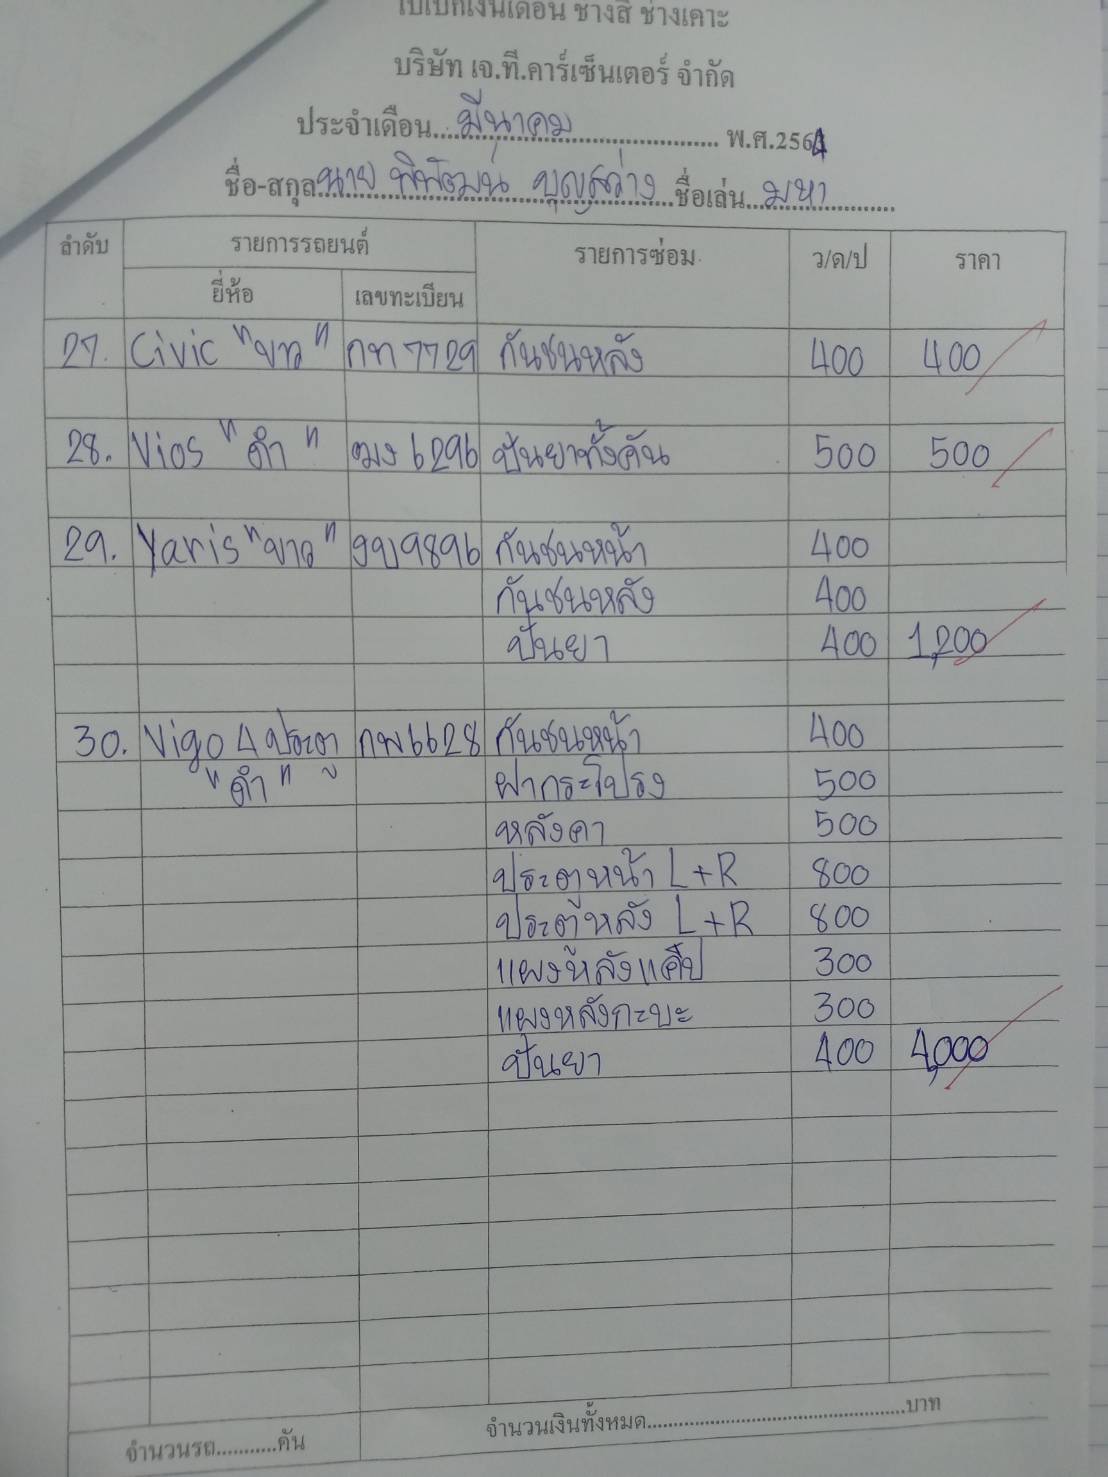 ใบเบิกเงินเดือน ช่างสี ช่างเคาะ
บริษัท เจ.ที.คาร์เซ็นเตอร์ จำกัด
ประจำเดือน...มีนาคม...พ.ศ.2564
ชื่อ-สกุล นาย พิพัฒน์ บุญสว่าง ชื่อเล่น...มหา...
ลำดับ รายการรถยนต์ รายการซ่อม ว/ด/ป ราคา
ยี่ห้อ เลขทะเบียน
27. Civic "ขาว" กท 7729 กันชนหลัง 400 400
28. Vios "ดำ" ฌง 6296 ปั่นยาทั้งคัน 500 500
29. Yaris "ขาว" 9896 กันชนหน้า 400
กันชนหลัง 400
ปั่นยา 400 1,200
30. Vigo 4 ประตู กพ 6628 กันชนหน้า 400
"ดำ" ฝากระโปรง 500
หลังคา 500
ประตูหน้า L+R 800
ประตูหลัง L+R 800
แผงหลังแค๊ป 300
แผงหลังกะบะ 300
ปั่นยา 400 4,000
จำนวนรถ...........คัน จำนวนเงินทั้งหมด...........บาท